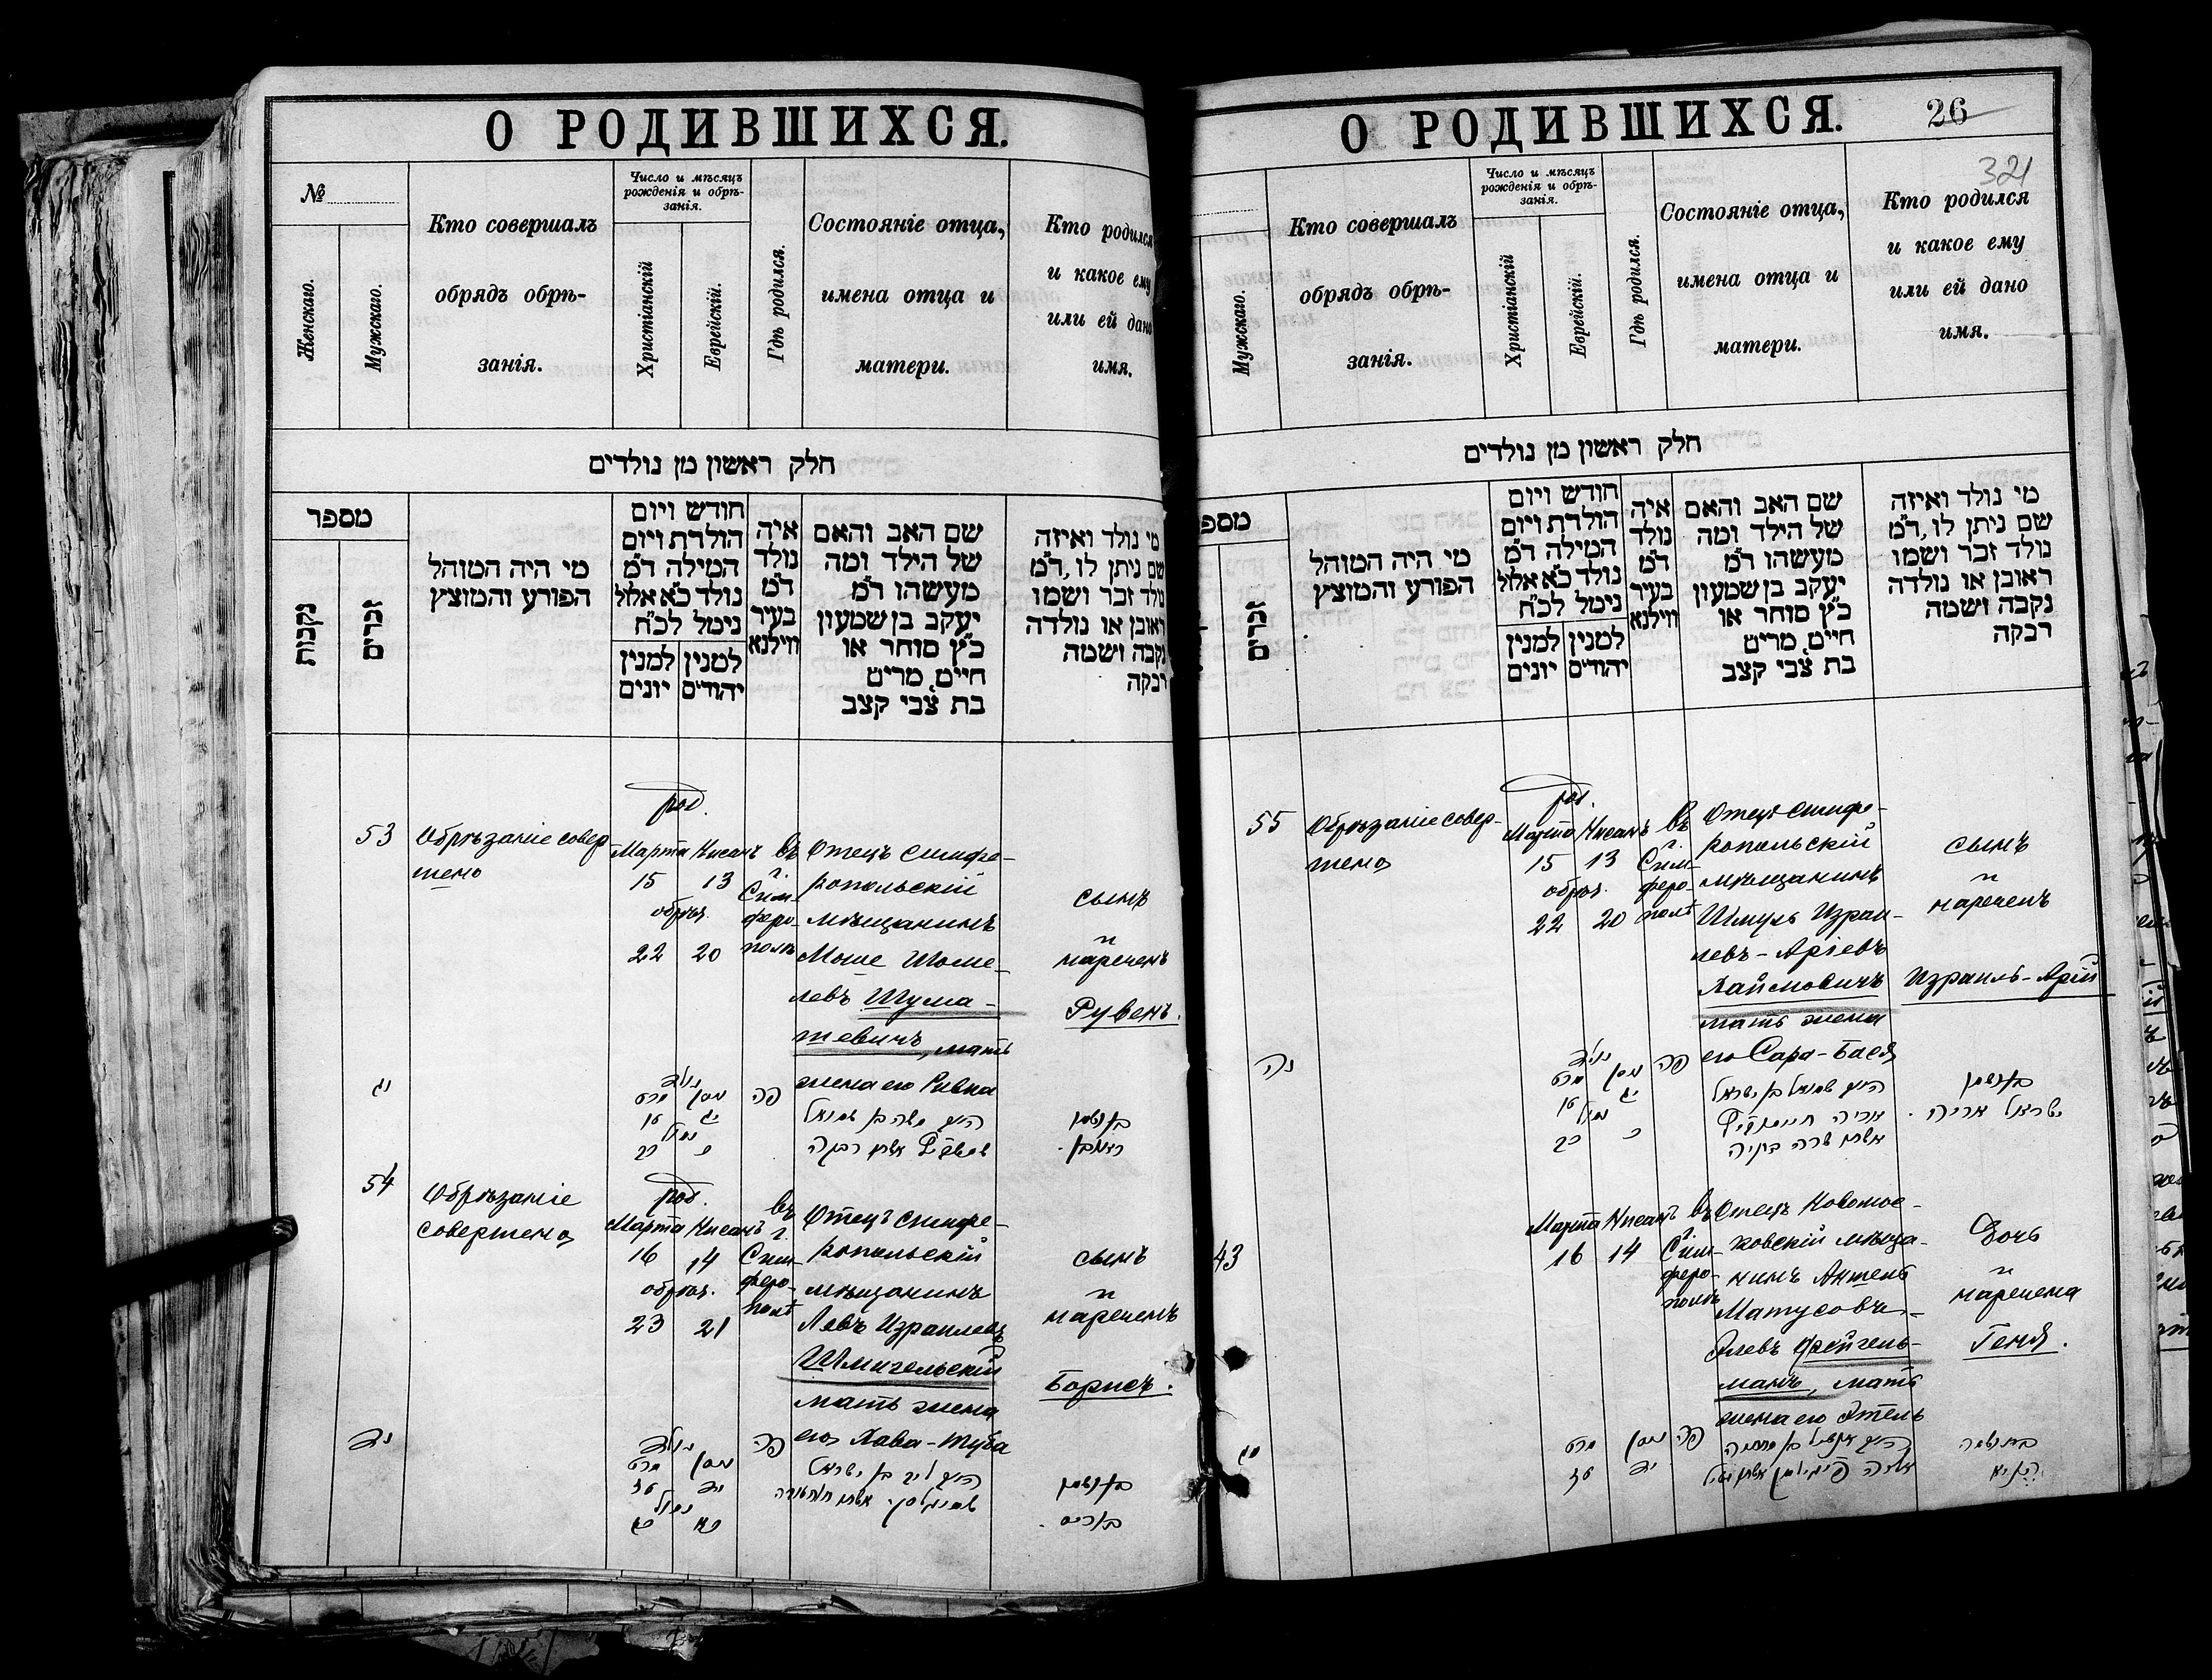 О РОДИВШИХСЯ.
№
Женскаго.
Мужскаго.
Кто совершалъ
обрядъ обрѣ-
занія.
Число и мѣсяцъ
рожденія и обрѣ-
занія.
Христіанскій
Еврейскій.
Гдѣ родился.
Состояніе отца,
имена отца и
матери.
Кто родился
и какое ему
или ей дано
имя.
חלק ראשון מן נולדים
מספר
נקבות
זכרים
מי היה המוהל
הפורע והמוצץ
חודש ויום
הולדת ויום
המילה ד״מ
נולד כ״א אלול
נימל לכ״ח
למנין
יונים
למנין
יהודים
איה
נולד
ד״מ
בעיר
ווילנא
שם האב והאם
של הילד ומה
מעשהו ד״מ
יעקב בן שמעון
כ״ץ סוחר או
חייט, מרים
בת צבי קצב
מי נולד ואיזה
שם ניתן לו, ד״מ
נולד זכר ושמו
ראובן או נולדה
נקבה ושמה
רבקה
53
Обрѣзаніе совер-
шено
род.
Марта Нисанъ
15 13
обрѣз.
22 20
въ
г.
Сим-
феро-
полѣ
Отецъ симфе-
ропольскій
мѣщанинъ
Моше Шоме-
левъ Шума-
шевичъ, мать
жена его Ривка
сынъ
и
нареченъ
Рувенъ.
נג
נולד
מרט ניסן
טו יג
נימול
כב כ
פה
בן ושמו
ראובן.
54
Обрѣзаніе
совершено
род.
Марта Нисанъ
16 14
обрѣз.
23 21
въ
г.
Сим-
феро-
полѣ
Отецъ симфе-
ропольскій
мѣщанинъ
Левъ Израилевъ
Шмигельскій
мать жена
его Хава-Туба
сынъ
и
нареченъ
Борисъ.
נד
נולד
מרט ניסן
טז יד
נימול
כג כא
פה
בן ושמו
О РОДИВШИХСЯ.
26
321
Мужскаго.
Кто совершалъ
обрядъ обрѣ-
занія.
Число и мѣсяцъ
рожденія и обрѣ-
занія.
Христіанскій
Еврейскій.
Гдѣ родился.
Состояніе отца,
имена отца и
матери.
Кто родился
и какое ему
или ей дано
имя.
חלק ראשון מן נולדים
מספ
זכרים
מי היה המוהל
הפורע והמוצץ
חודש ויום
הולדת ויום
המילה ד״מ
נולד כ״א אלול
נימל לכ״ח
למנין
יונים
למנין
יהודים
איה
נולד
ד״מ
בעיר
ווילנא
שם האב והאם
של הילד ומה
מעשהו ד״מ
יעקב בן שמעון
כ״ץ סוחר או
חייט, מרים
בת צבי קצב
מי נולד ואיזה
שם ניתן לו, ד״מ
נולד זכר ושמו
ראובן או נולדה
נקבה ושמה
רבקה
55
Обрѣзаніе совер-
шено
род.
Марта Нисанъ
15 13
обрѣз.
22 20
въ
г.
Сим-
феро-
полѣ
Отецъ симфе-
ропольскій
мѣщанинъ
Шмуль Израи-
левъ-Аріевъ
Хаймовичъ
мать жена
его Сара-Бася
сынъ
и
нареченъ
Израиль-Арій
נה
נולד
מרט ניסן
טו יג
נימול
כב כ
פה
בן ושמו
ישראל אריה.
43
Марта Нисанъ
16 14
въ
г.
Сим-
феро-
полѣ
Отецъ Новомос-
ковскій мѣща-
нинъ Аншель
Матусовъ-
мать
жена его Этель
дочь
и
наречена
Геня.
מג
מרט ניסן
טז יד
פה